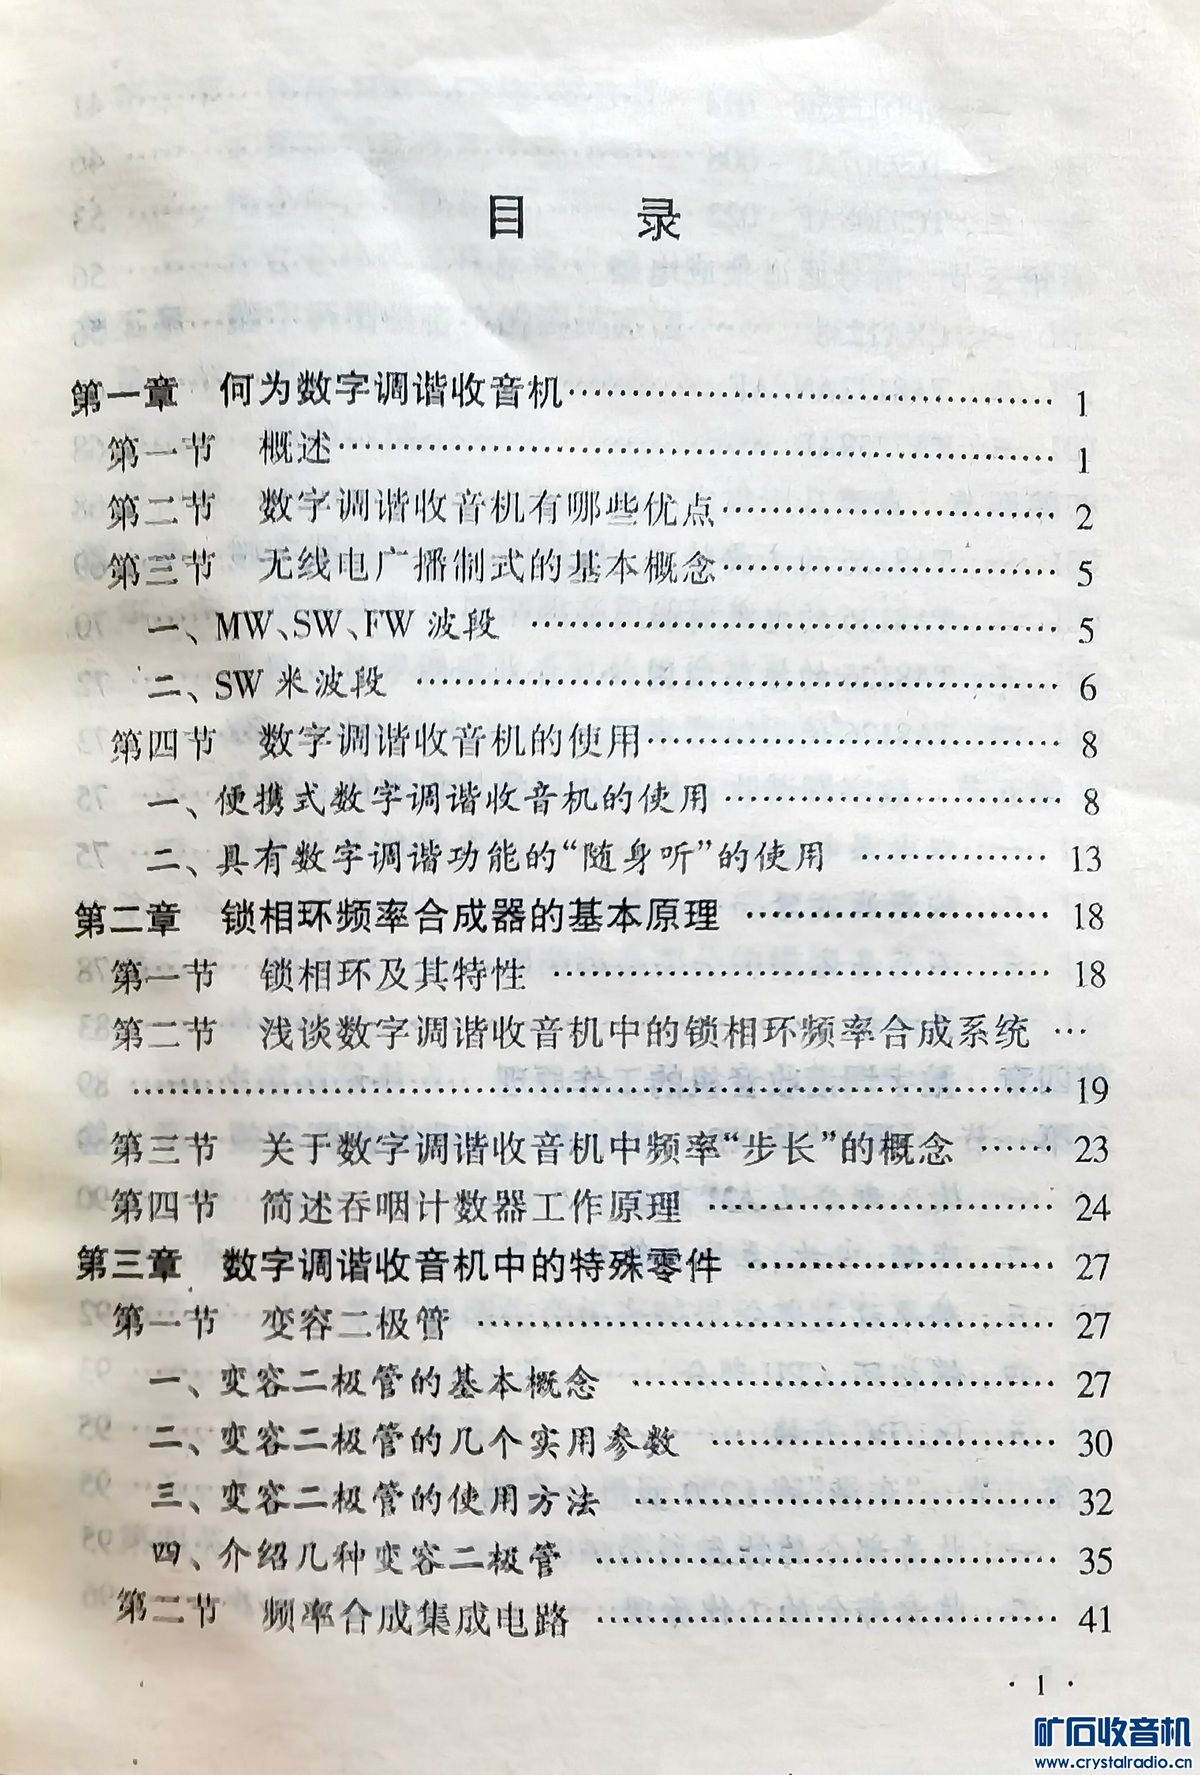 目 录
第一章 何为数字调谐收音机…………………………………… 1
第一节 概述……………………………………………………… 1
第二节 数字调谐收音机有哪些优点………………………… 2
第三节 无线电广播制式的基本概念………………………… 5
一、MW、SW、FW 波段 ……………………………………… 5
二、SW 米波段 ……………………………………………… 6
第四节 数字调谐收音机的使用……………………………… 8
一、便携式数字调谐收音机的使用 ………………………… 8
二、具有数字调谐功能的“随身听”的使用 …………… 13
第二章 锁相环频率合成器的基本原理 …………………… 18
第一节 锁相环及其特性 …………………………………… 18
第二节 浅谈数字调谐收音机中的锁相环频率合成系统 …
…………………………………………………………………… 19
第三节 关于数字调谐收音机中频率“步长”的概念 …… 23
第四节 简述吞咽计数器工作原理 ………………………… 24
第三章 数字调谐收音机中的特殊零件 …………………… 27
第一节 变容二极管 ………………………………………… 27
一、变容二极管的基本概念 ……………………………… 27
二、变容二极管的几个实用参数 ………………………… 30
三、变容二极管的使用方法 ……………………………… 32
四、介绍几种变容二极管 ………………………………… 35
第二节 频率合成集成电路 ………………………………… 41
· 1 ·
矿石收音机
www.crystalradio.cn